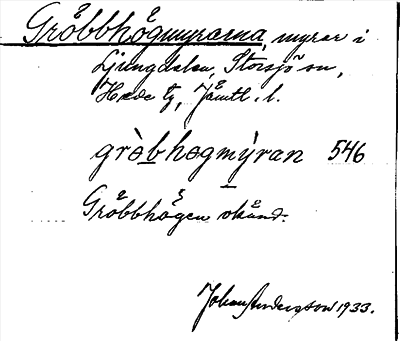 Gråbbhögmyrarna, myrar i
Ljungdalen, Storsjö sn,
Hede tg, Jämtl. l.
gròbhøgmýran 546
Gråbbhögen okänd.
Johan Anderson 1933.